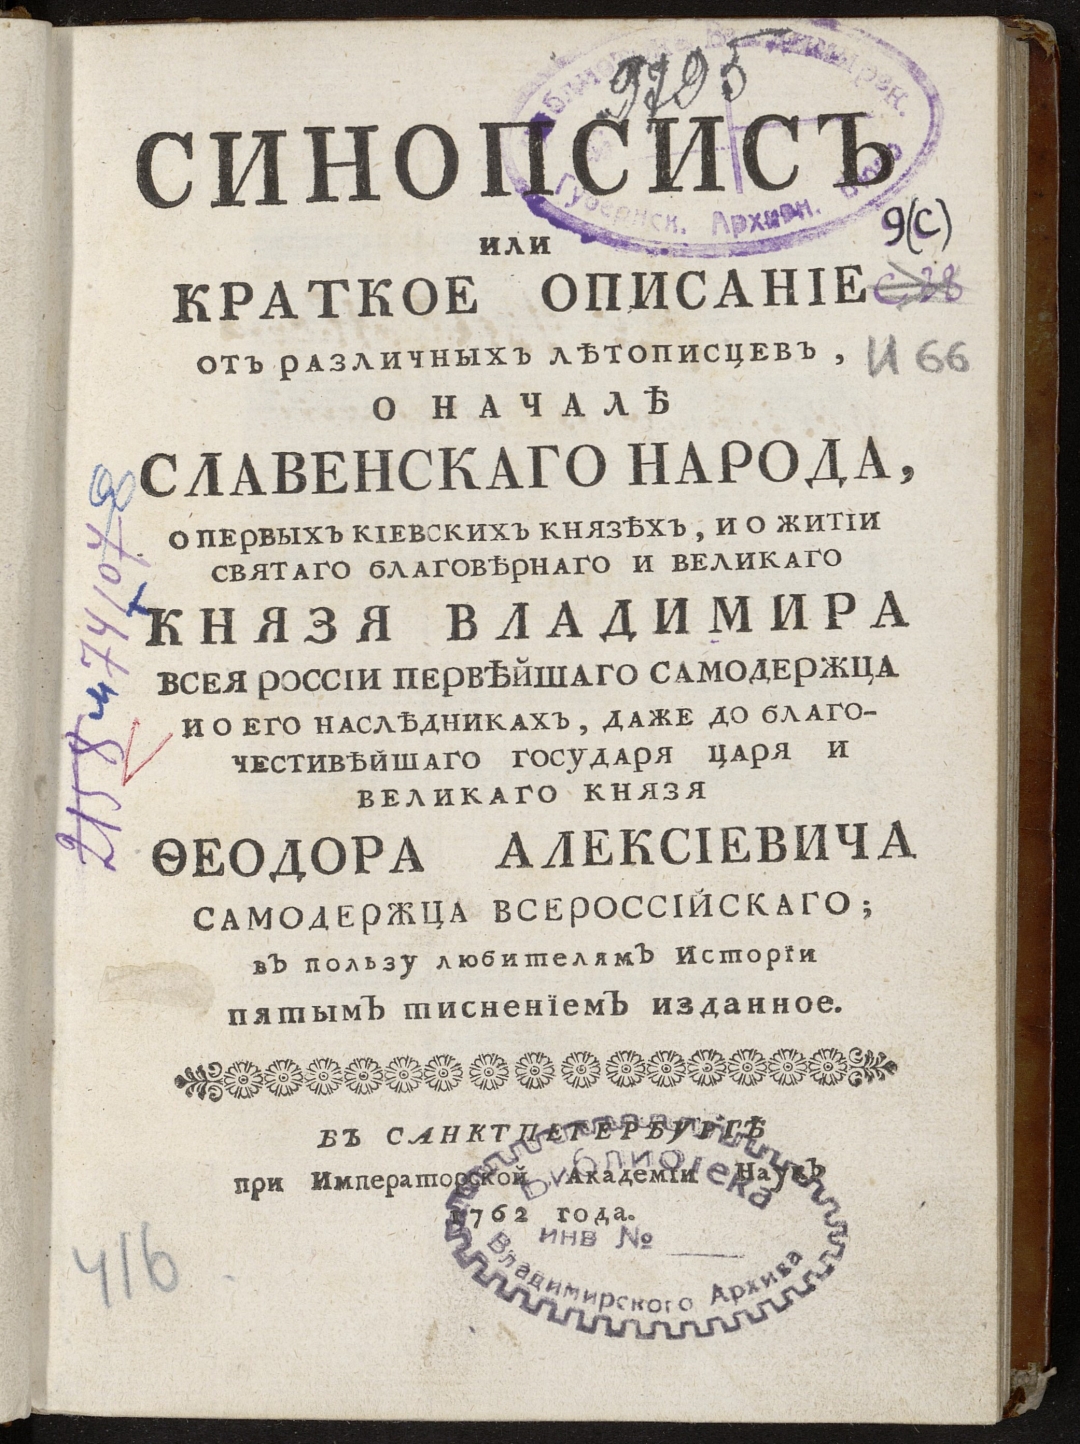 9705
СИНОПСИСЪ
Губернск. Архивн.
или
9(С)
КРАТКОЕ ОПИСАНІЕ
С 38
отъ различныхъ лѣтописцевъ,
И 66
О НАЧАЛѢ
СЛАВЕНСКАГО НАРОДА,
о первыхъ кіевскихъ князѣхъ, и о житіи
святаго благовѣрнаго и великаго
КНЯЗЯ ВЛАДИМИРА
всея россіи первѣйшаго самодержца
и о его наслѣдникахъ, даже до благо-
честивѣйшаго государя царя и
великаго князя
ѲЕОДОРА АЛЕКСІЕВИЧА
самодержца всероссійскаго;
въ пользу любителямъ Исторіи
пятымъ тисненіемъ изданное.
ВЪ САНКТПЕТЕРБУРГѢ
при Императорской Академіи Наукъ
1762 года.
Библиотека
инв №
Владимирского Архива
416